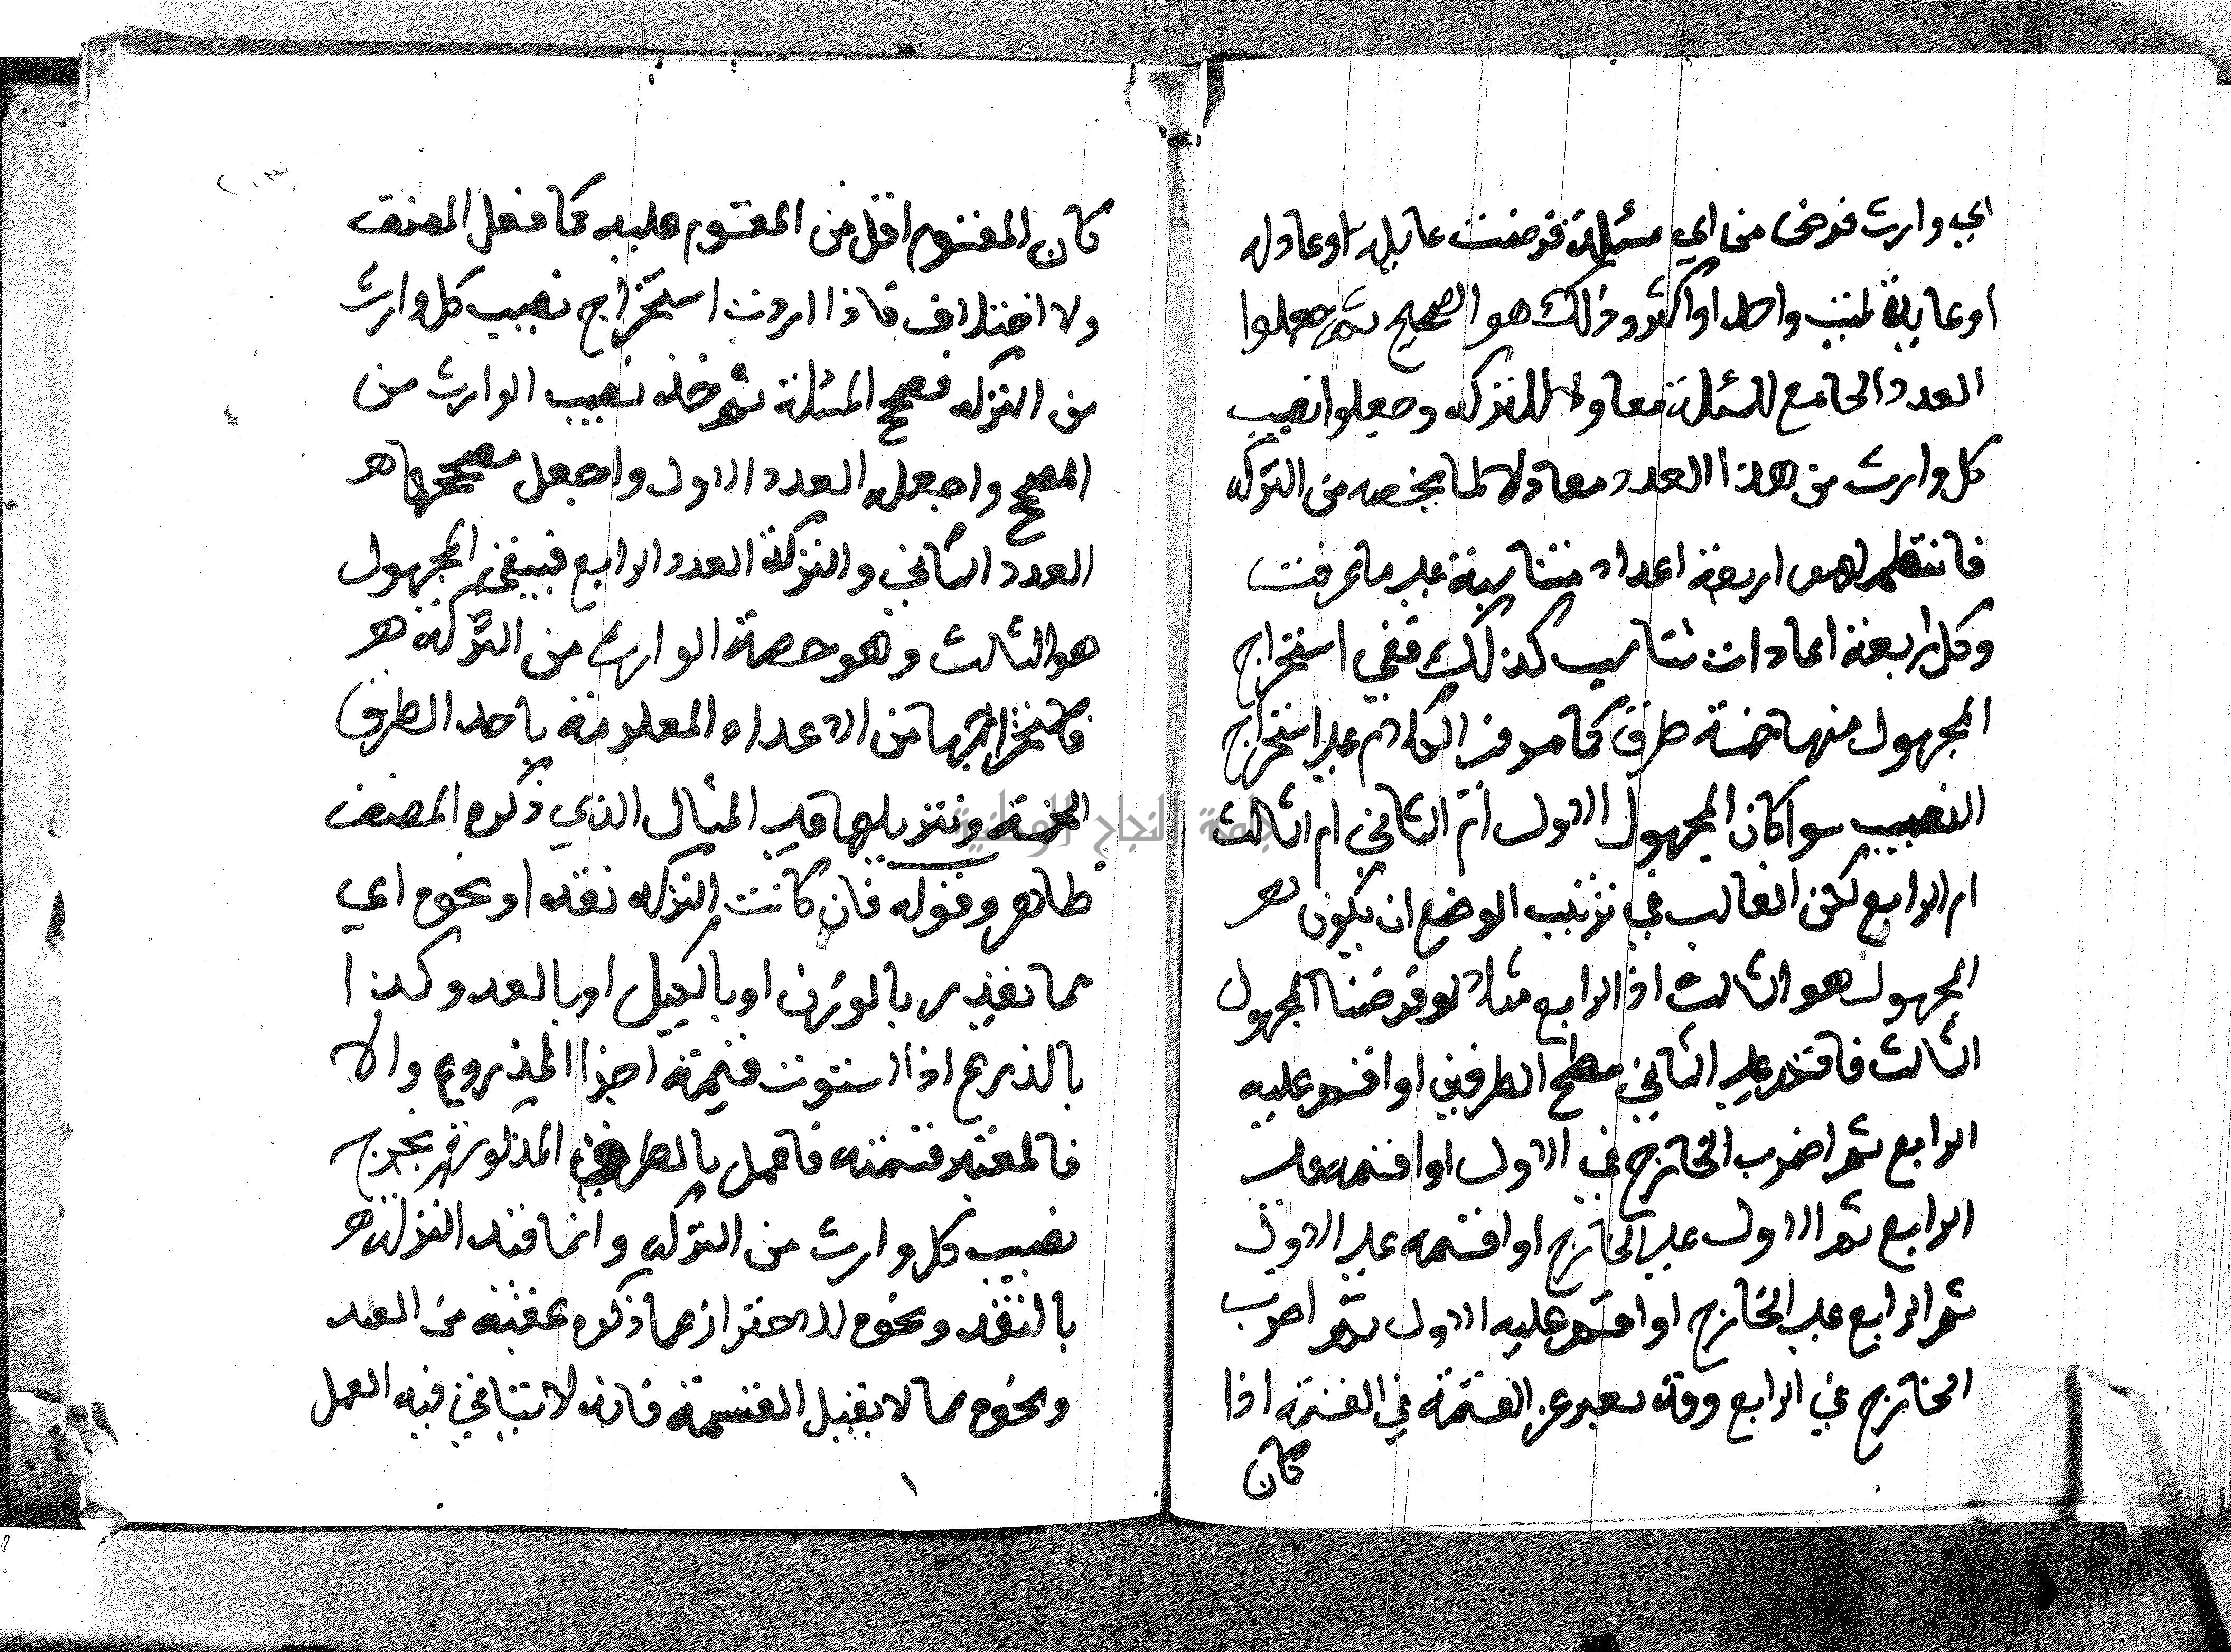 اي وارث فرض من اي مسئلة فرضت عايله او عادله
او عايلة لميت واحد او اكثر وذلك هو الصحيح ثم جعلوا
العدد الجامع للمسئلة معاولا للتركه وجعلوا نصيب
كل وارث من هذا العدد معادلا لما يخصه من التركه
فانتظم لهم اربعة اعداد متناسبة علي ما عرفت
وكل اربعة اعدادات تناسب كذلك ففي استخراج
المجهول منها خمسة طرق كما مر في الكلام علي استخراج
النصيب سوا كان المجهول الاول ام الثاني ام الثالث
ام الرابع لكن الغالب في ترتيب الوضع ان يكون هو
المجهول هو الثالث اذ الرابع مثلا لو فرضنا المجهول
الثالث فاقسم علي الثاني مسطح الطرفين او اقسم عليه
الرابع ثم اضرب الخارج في الاول او اقسمه علي
الرابع ثم الاول علي الخارج او اقسمه علي الاول
ثم الرابع علي الخارج او اقسم عليه الاول ثم اضرب
الخارج في الرابع وقد يعبر عن القسمة في القسمة اذا
كان
كان المقسوم اقل من المقسوم عليه كما فعل المصنف
ولا اختلاف فاذا اردت استخراج نصيب كل وارث
من التركه فصحح المسئلة ثم خذ نصيب الوارث من
المصحح واجعله العدد الاول واجعل مصححها هو
العدد الثاني والتركة العدد الرابع فيبقي المجهول
هو الثالث وهو حصة الوارث من التركة هو
فاستخراجها من الاعداد المعلومة باحد الطرق
الخمسة وتنزيلها علي المثال الذي ذكره المصنف
ظاهر وقوله فان كانت التركه نقد او نحوه اي
مما تقدير بالوزن او بالكيل او بالعد وكذا
بالذريع اذا استوت قيمة اجزا المذروع والا
فالمعتبر قسمته فاعمل بالطرق المذكورة يخرج
نصيب كل وارث من التركه وانما قيد التركة هو
بالنقد ونحوه للاحتراز عما ذكره عقبه من العبد
ونحوه مما لا يقبل القسمة فانه لا يتاتي فيه العمل
جامعة النجاح الوطنية